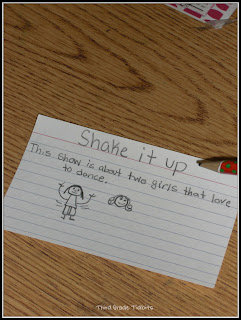 Shake it up
This show is about two girls that love
to dance.
Third Grade Tidbits